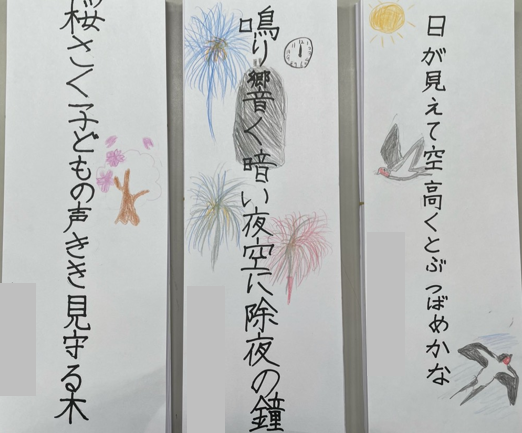 日が見えて空高くとぶつばめかな
鳴り響く暗い夜空に除夜の鐘
桜さく子どもの声きき見守る木